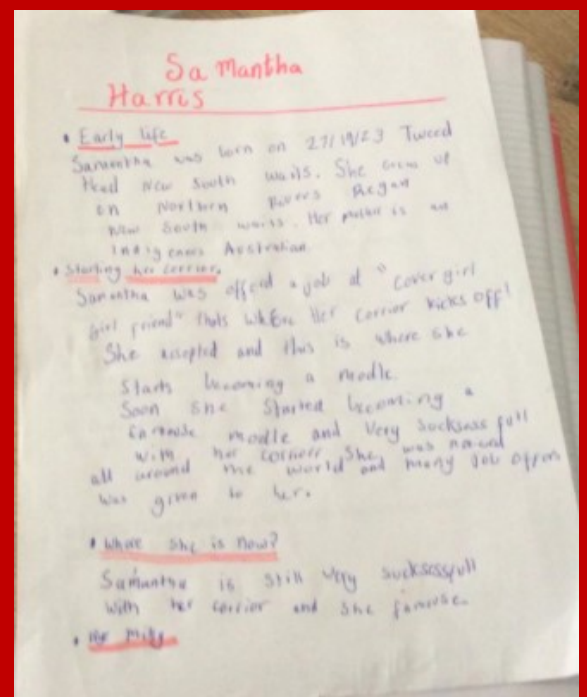 Samantha
Harris
• Early life
Samantha was born on 27/19/23 Tweed
Head New South Wails. She grew up
on Northern Rivers Regan
New South Wails. Her mother is an
Indigenous Australian.
• Starting her corrier.
Samantha was offerd a job at "Cover girl
girl friend" thats where Her corrier kicks off!
She accepted and this is where she
Starts becoming a modle.
Soon she started becoming a
modle and very sucksessfull
with her corrier. She was
all around the world and many Job offers
was given to her.
• Where she is now?
Samantha is still very sucksessfull
with her corrier and she famouse.